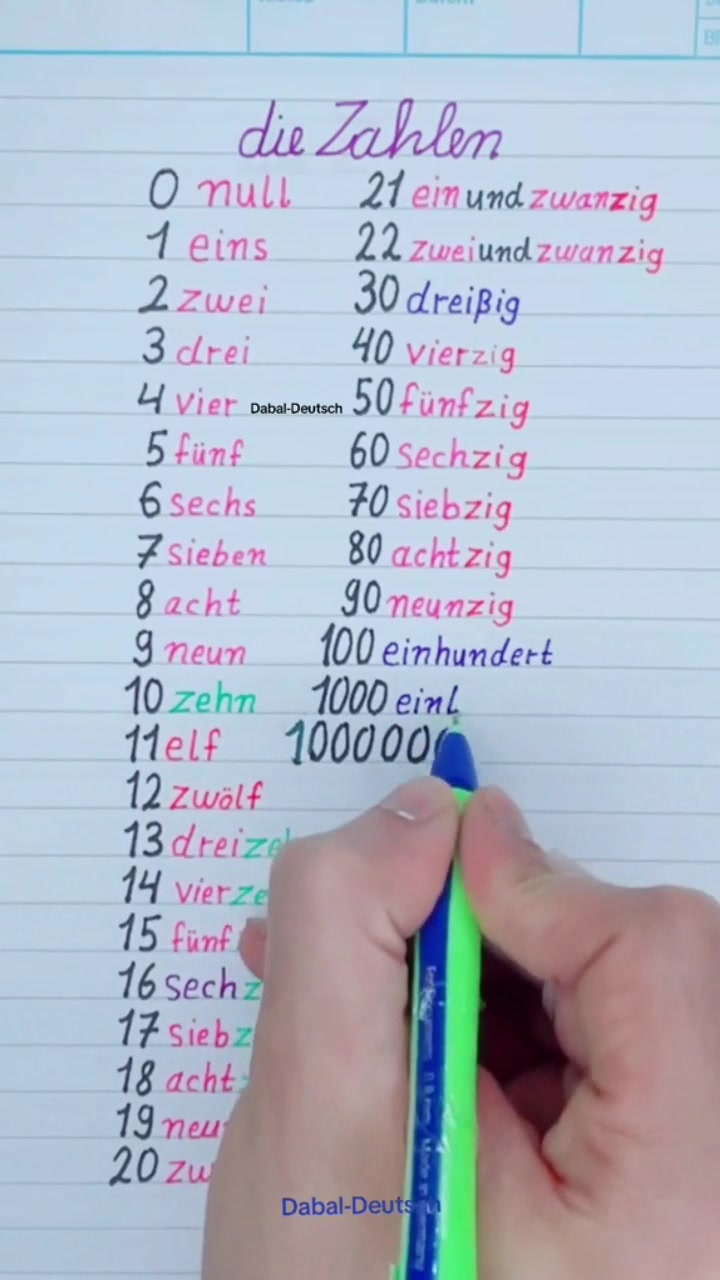 die Zahlen
0 null
1 eins
2 zwei
3 drei
4 vier
5 fünf
6 sechs
7 sieben
8 acht
9 neun
10 zehn
11 elf
12 zwölf
13 dreize
14 vierze
15 fünf
16 sechz
17 siebz
18 acht
19 neu
20 zw
21 einundzwanzig
22 zweiundzwanzig
30 dreißig
40 vierzig
50 fünfzig
60 sechzig
70 siebzig
80 achtzig
90 neunzig
100 einhundert
1000 eint
1000000
Dabal-Deutsch
Dabal-Deutsch